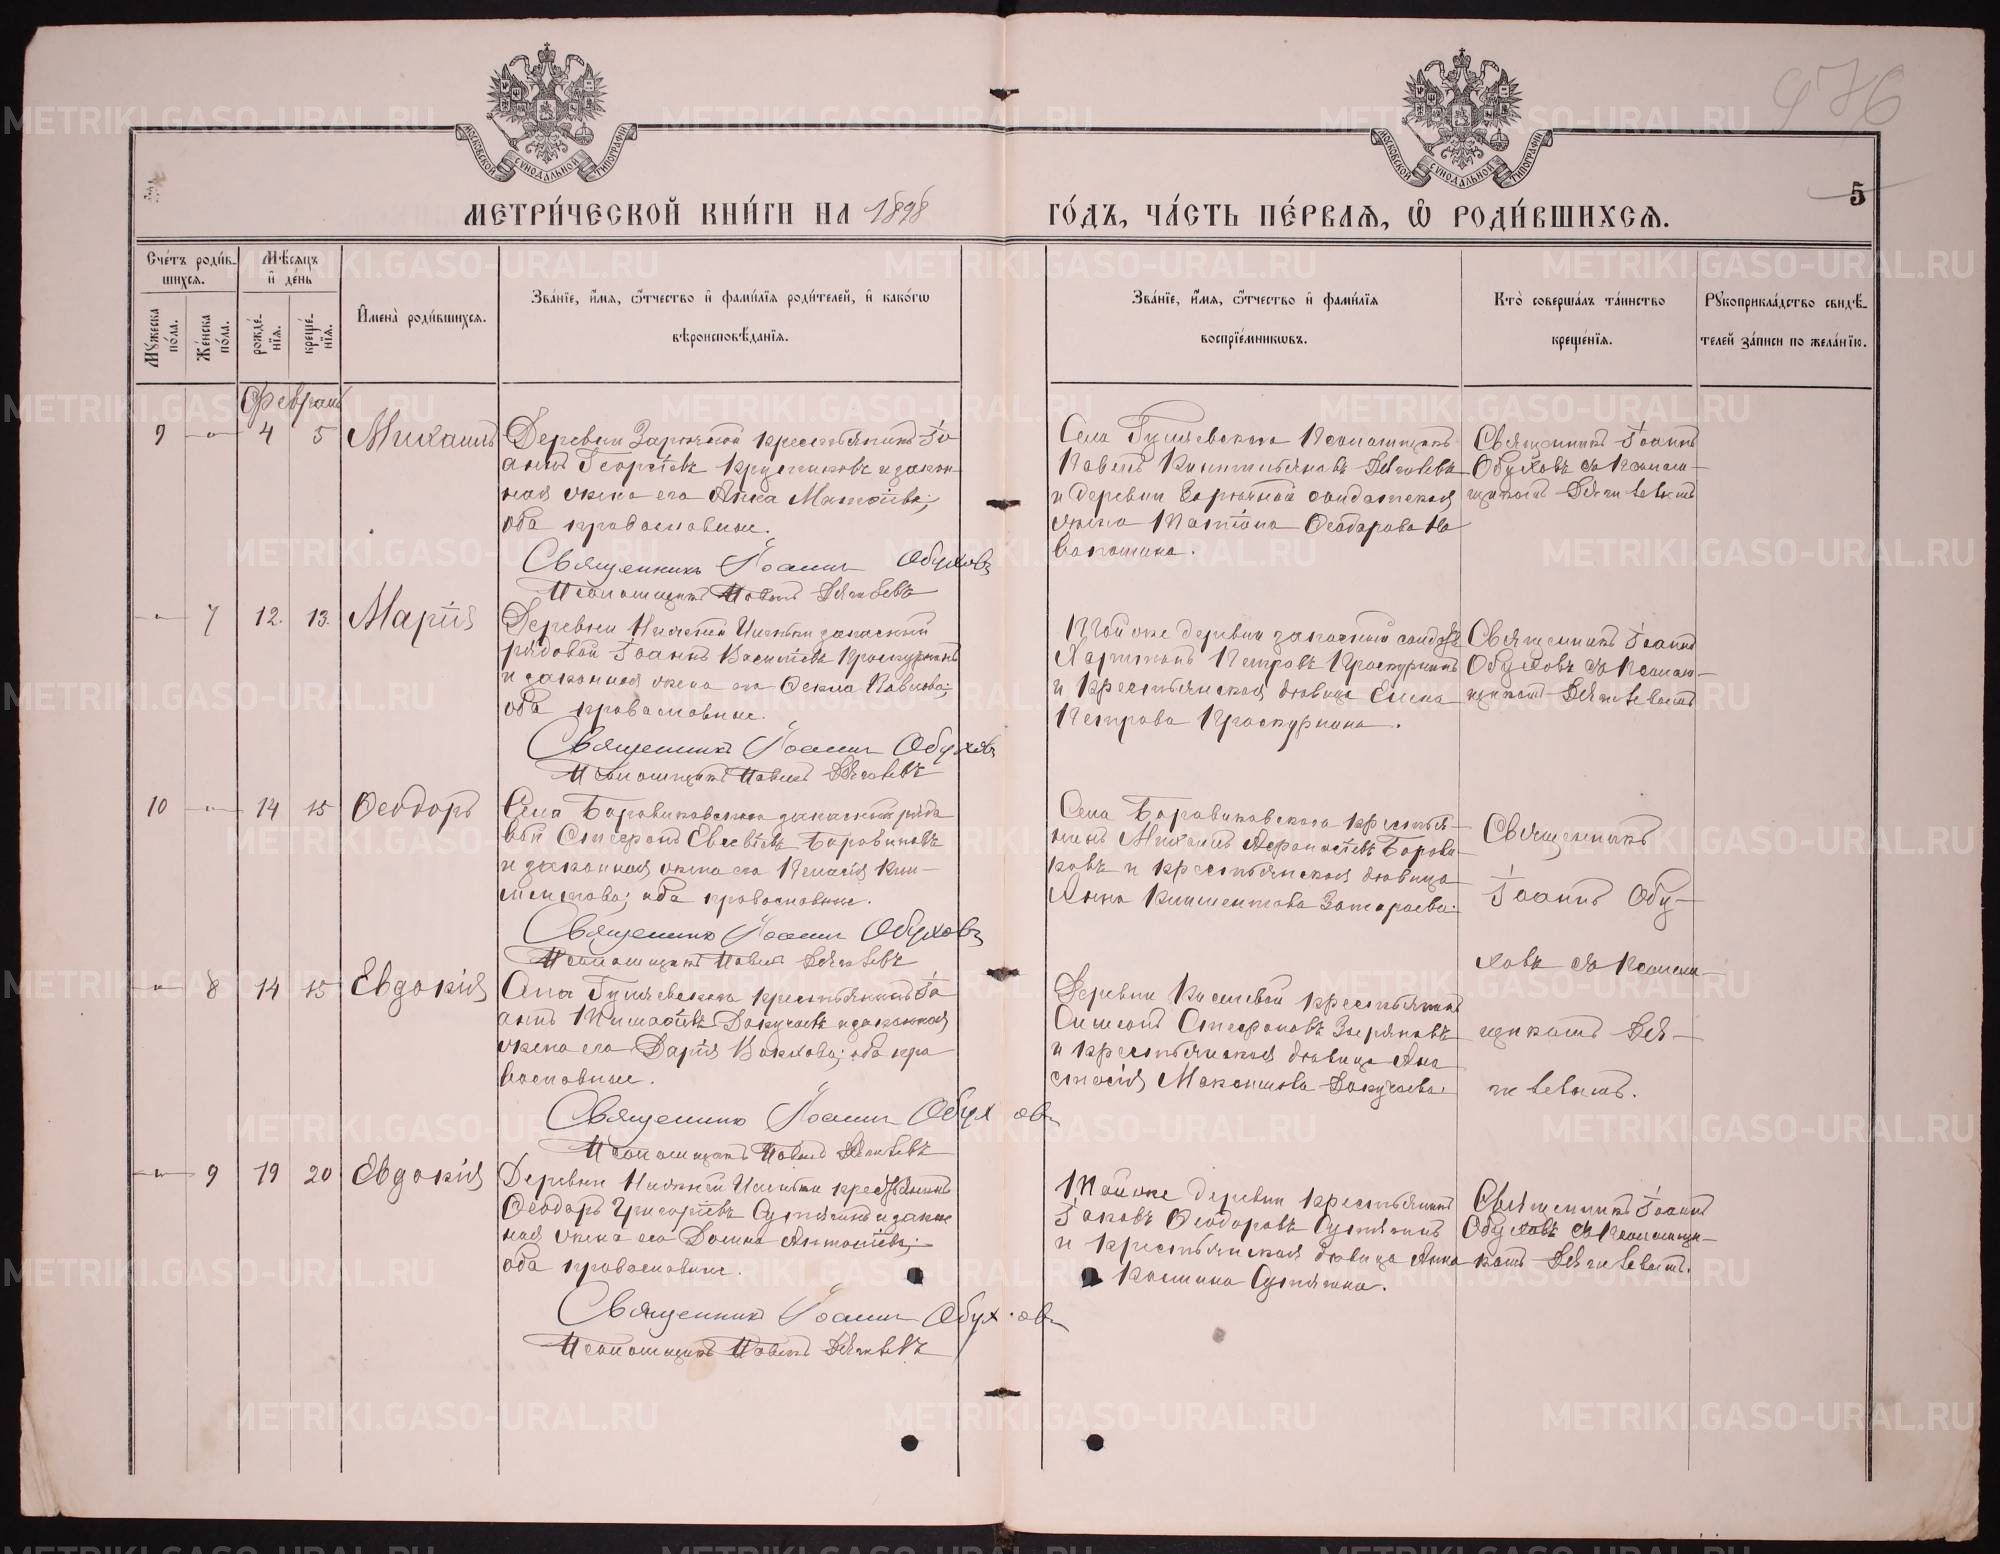 976
МОСКОВСКОЙ СУНОДАЛЬНОЙ ТИПОГРАФІИ
МОСКОВСКОЙ СУНОДАЛЬНОЙ ТИПОГРАФІИ
5
МЕТРИ́ЧЕСКОЙ КНИ́ГИ НА 1898 ГО́ДЪ, ЧА́СТЬ ПЕ́РВАѦ, Ѽ РОДИ́ВШИХСѦ.
Сче́тъ роди́в-
шихсѧ.
Мѣ́сѧцъ
и҆ де́нь
Мꙋ́жеска по́ла.
Же́нска по́ла.
рожде́-нїѧ.
креще́-нїѧ.
И҆мена̀ роди́вшихсѧ.
Зва́нїе, и҆́мѧ, ѻ҆́тчество и҆ фами́лїѧ роди́телей, и҆ како́гѡ
вѣроисповѣ́данїѧ.
Зва́нїе, и҆́мѧ, ѻ҆́тчество и҆ фами́лїѧ
воспрїе́мникѡвъ.
Кто̀ соверша́лъ та́инство
креще́нїѧ.
Рꙋкоприкла́дство свидѣ́-
телей за́писи по жела́нїю.
Февраль
9 —"— 4 5 Михаилъ
Деревни Заречной крестьянинъ Іо-
аннъ Георгіевъ Кругликовъ и закон-
ная жена его Анна Матѳіева;
оба православные.
Священникъ Іоаннъ Обуховъ
Псаломщикъ Павелъ Дягилевъ
Села Гуляевскаго Псаломщикъ
Павелъ Дягилевъ
и деревни Заречной солдатская
жена Татіана Ѳеодорова Но
вопашина.
Священникъ Іоаннъ
Обуховъ съ Псалом-
щикомъ Дягилевымъ
—"— 7 12. 13. Марія
Деревни Нижней Иленьки запасный
рядовой Іоаннъ Васильевъ Проскурнинъ
и законная жена его Ѳекла Павлова;
оба православные.
Священникъ Іоаннъ Обуховъ
Псаломщикъ Павелъ Дягилевъ
Той же деревни запасный солдатъ
Харитонъ Петровъ Проскурнинъ
и крестьянская дѣвица Елена
Петрова Проскурнина.
Священникъ Іоаннъ
Обуховъ съ Псалом-
щикомъ Дягилевымъ
10 —"— 14 15 Ѳеодоръ
Села Боровиковскаго запасный рядо
вой Стефанъ Евсевіевъ Боровиковъ
и законная жена его Пелагія Кли-
ментова; оба православные.
Священникъ Іоаннъ Обуховъ
Псаломщикъ Павелъ Дягилевъ
Села Боровиковскаго крестья-
нинъ Михаилъ Аѳанасіевъ Борови-
ковъ и крестьянская дѣвица
Анна Климентова
Священникъ
Іоаннъ Обу-
ховъ съ Псалом-
щикомъ Дя-
гилевымъ.
—"— 8 14 15 Евдокія
Села Гуляевскаго крестьянинъ Іо-
аннъ Тимоѳіевъ Докучаевъ и законная
жена его Дарія; оба пра
вославные.
Священникъ Іоаннъ Обуховъ
Псаломщикъ Павелъ Дягилевъ
Деревни Киселевой крестьянинъ
Симеонъ Стефановъ Зыряновъ
и крестьянская дѣвица Ана
стасія Максимова Докучаева.
—"— 9 19 20 Евдокія
Деревни Нижней Иленьки крестьянинъ
Ѳеодоръ Григоріевъ Сутягинъ и закон
ная жена его Домна Антоніева;
оба православные.
Священникъ Іоаннъ Обуховъ
Псаломщикъ Павелъ Дягилевъ
Той же деревни крестьянинъ
Іаковъ Ѳеодоровъ Сутягинъ
и крестьянская дѣвица Анна
Космина Сутягина.
Священникъ Іоаннъ
Обуховъ съ Псаломщи-
комъ Дягилевымъ.
METRIKI.GASO-URAL.RU